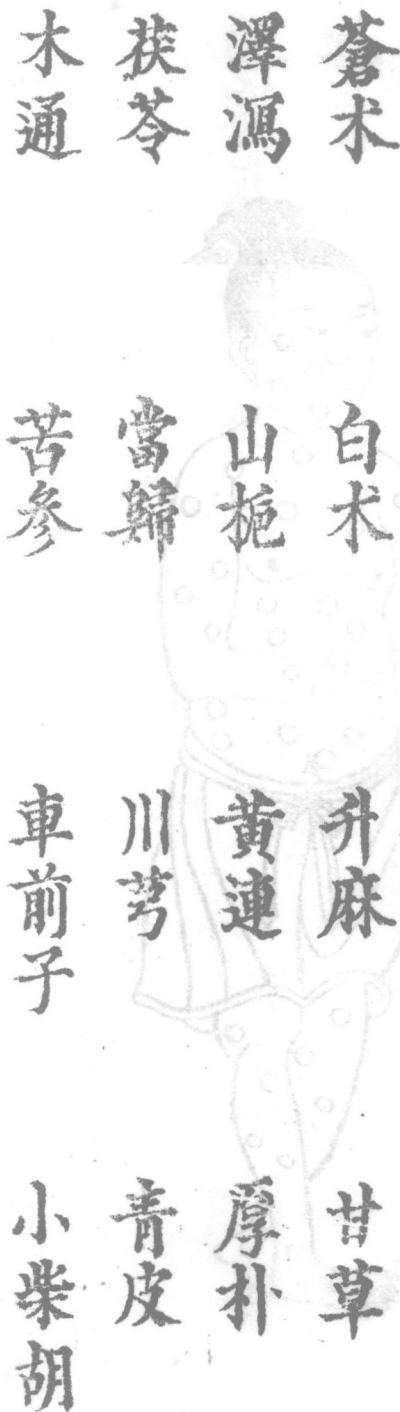 蒼朮 白朮 升麻 甘草
澤瀉 山梔 黃連 厚朴
茯苓 當歸 川芎 青皮
木通 苦參 車前子 小柴胡